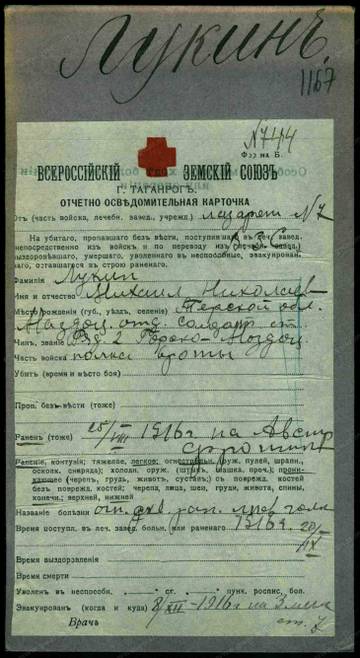 Лукинъ
1167
N 7474
Форма Б.
ВСЕРОССІЙСКІЙ ЗЕМСКІЙ СОЮЗЪ
Г. ТАГАНРОГЪ.
ОТЧЕТНО ОСВѢДОМИТЕЛЬНАЯ КАРТОЧКА
Отъ (часть войска, лечебн. завед., учрежд.) Лазарет N 7
В З С
На убитаго, пропавшаго безъ вѣсти, поступившаго въ
непосредственно изъ войскъ и по переводу изъ
выздоровѣвшаго, умершаго, уволеннаго въ неспособные, эвакуирован-
наго, оставшагося въ строю раненаго.
Фамилія Лукин
Имя и отчество Михаил Николаев
Мѣсто рожденія (губ., уѣздъ, селеніе) Терской обл.
Моздок. отд.
Чинъ, званіе 2 Горско-Моздок.
Часть войска полка
Убитъ (время и мѣсто боя)
Проп. безъ вѣсти (тоже)
Раненъ (тоже) 25/VIII 1916 г на Австр
фронте
Раненіе, контузія; тяжелое, легкое; огнестрѣльн. (руж. пулей, шрапн.,
осколк. снаряда); холодн. оруж. (штык., шашка, проч.); прони-
кающей (черепъ, грудь, животъ, суставъ); съ поврежд. костей
безъ поврежд. костей; черепа, лица, шеи, груди, живота, спины,
конечн.; верхней, нижней
Названіе болѣзни огн. рап. прав голен
Время поступл. въ леч. завед. больн. или раненаго 1916 г. 20/IX
Время выздоровленія
Время смерти
Уволенъ въ неспособн. ст. пунк. роспис. бол.
Эвакуированъ (когда и куда) 8/XII-1916 г на
Врачъ